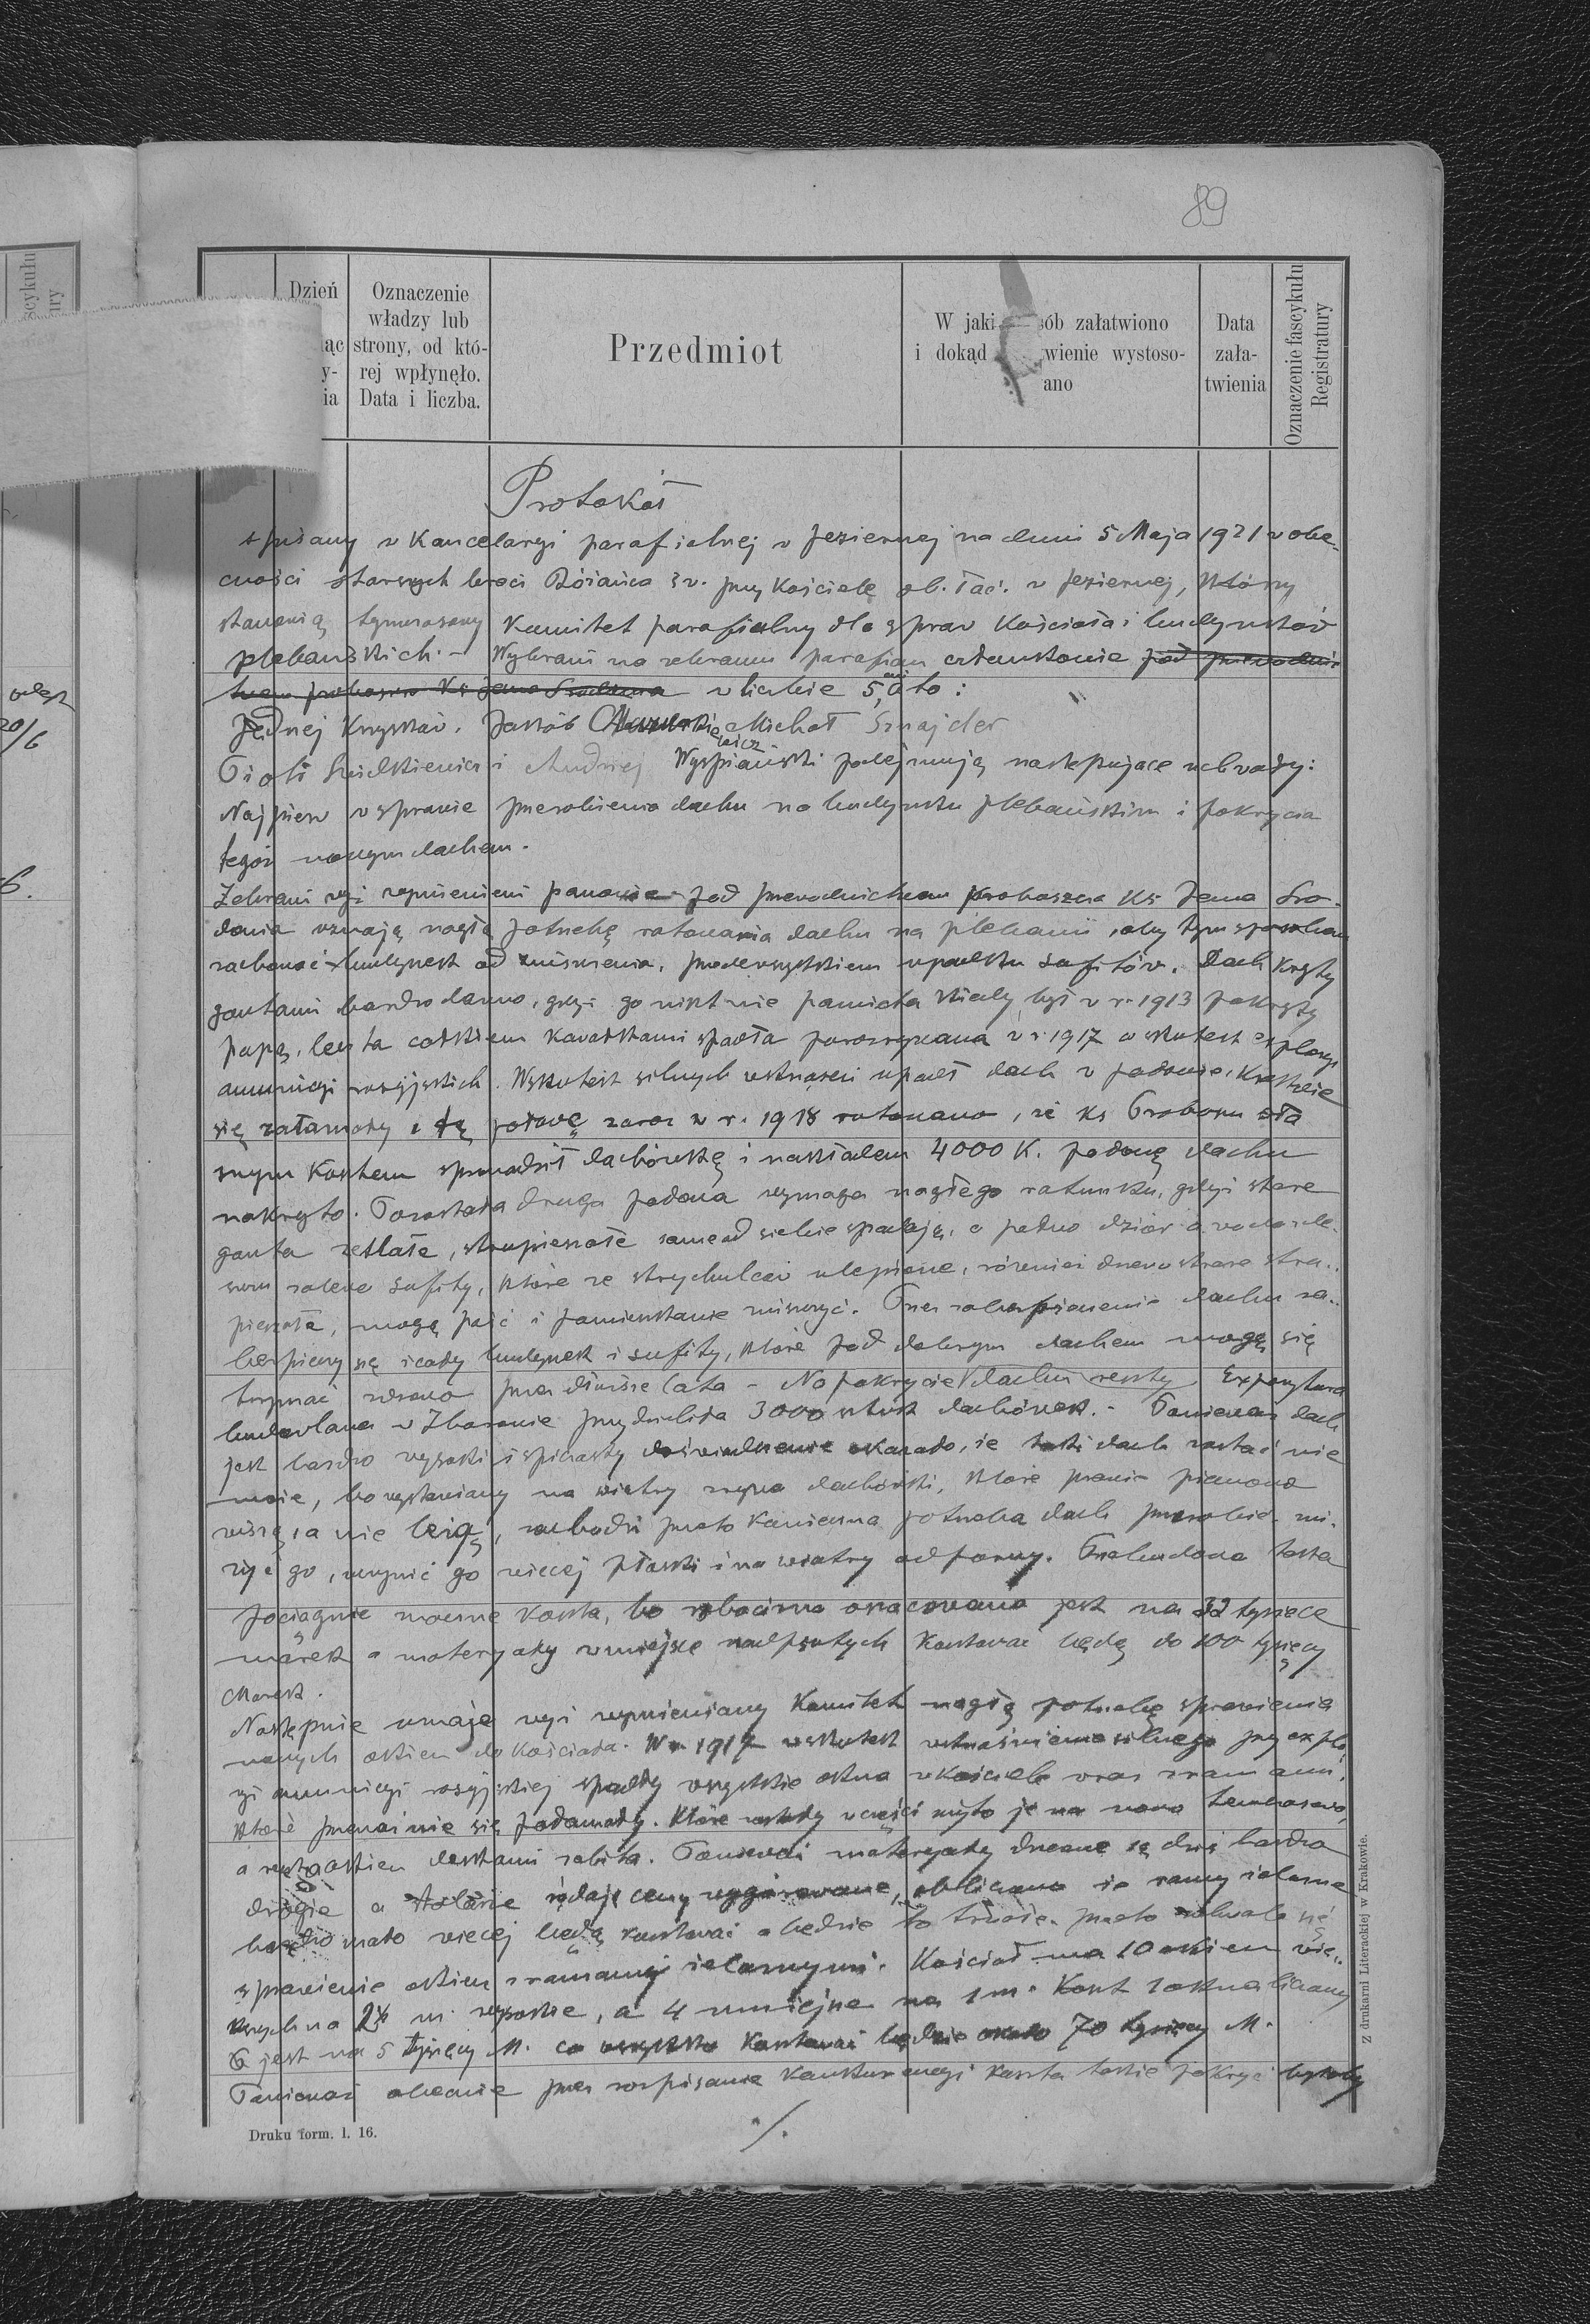 89
Dzień
ąc
y-
ia
Oznaczenie
władzy lub
strony, od któ-
rej wpłynęło.
Data i liczba.
Przedmiot
W jaki sób załatwiono
i dokąd wienie wystoso-
ano
Data
zała-
twienia
Oznaczenie fascykułu
Registratury
Protokół
spisany w Kancelaryi parafialnej w Jeziernej na dniu 5 Maja 1921 w obe-
cności starszych braci Różańca św. przy Kościele ob. łać. w Jeziernej, którzy
stanowią tymczasowy Komitet parafialny dla spraw Kościoła i budynków
plebańskich. – Wybrani na zebraniu parafian członkowie pod przewodnic
twem proboszcza Ks Jana w liczbie 5, a to:
Jędrzej Krysków, Jakób Michał Sznajder
Piotr i Andrzej Wyspiański podejmują następujące uchwały:
Najpierw w sprawie przerobienia dachu na budynku plebańskim i pokrycia
tegoż nowym dachem.
Zebrani wyż wymienieni panowie pod przewodnictwem proboszcza Ks Jana
uznają nagłą potrzebę ratowania dachu na plebanii, aby tym sposobem
zachować budynek od zniszczenia, przedewszystkiem upadku sufitów. Dach kryty
gontami bardzo dawno, gdyż go nikt nie pamięta kiedy, był w r. 1913 pokryty
papą, lecz ta całkiem kawałkami spadła porozrywana w r. 1917 wskutek explozyi
amunicyi rosyjskich. Wskutek silnych wstrząśień upadł dach w połowie, Krokwie
się załamały i tę połowę zaraz w r. 1918 ratowano, że ks Proboszcz wła
snym kosztem sprowadził dachówkę i nakładem 4000 K. połowę dachu
nakryto. Pozostała druga połowa wymaga nagłego ratunku, gdyż stare
gonta zetlałe, strupieszałe same od siebie spadają, a pełno dziur a woda
zalewa sufity, które ze strychulców ulepione, również drzewo stare stru-
pieszałe, mogą paść i pomieszkanie zniszczyć. Przez zabezpieczenie dachu za-
bezpieczy się i cały budynek i sufity, które pod dobrym dachem mogą się
trzymać zdrowo przez dłuższe lata – Na pokrycie dachu reszty Expozytura
budowlana w Zbarażu przydzieliła 3000 sztuk dachówek. – Ponieważ dach
jest bardzo wysoki i spiczasty doświadczenie okazało, że taki dach zostać nie
może, bo wystawiony na wiatry zrywa dachówki, które prawie pionowo
wiszą, a nie leżą, zachodzi przeto konieczna potrzeba dach przerobić zni-
żyć go, uczynić go więcej płaski i na wiatry odporny. Przebudowa taka
pociągnie znaczne koszta, bo robocizna oszacowana jest na 32 tysiące
marek a materyały w miejsce nadpsutych kosztować będą do 100 tysięcy
Marek.
Następnie uznaje wyż wymieniany Komitet nagłą potrzebę sprawienia
nowych okien do Kościoła. W r. 1917 wskutek wstrząśnienia silnego przy explo
zyi amunicyi rosyjskiej spadły wszystkie okna w kościele wraz z ramami,
które przeważnie się połamały. Które wtedy w części zbito je na nowo tymczasowo,
a reszta okien deskami zabita. Ponieważ materyały drzewne są dziś bardzo
drogie a stolarze żądają ceny wygórowane, obliczono że ramy żelazne
bardzo mało więcej będą kosztować a będzie to trwałe. przeto uchwala się
sprawienie okien z ramami żelaznymi. Kościół ma 10 okien wię-
kszych na 2½ m. wysokie, a 4 mniejsze na 1 m. Koszt 1 okna liczony
jest na 5 tysięcy M. co wszystko kosztować będzie około 70 tysięcy M.
Ponieważ obecnie przez rozpisanie konkurencyi koszta takie pokryć byłoby
./.
Druku form. l. 16.
Z drukarni Literackiej w Krakowie.
scykułu
ry
20/6
6.